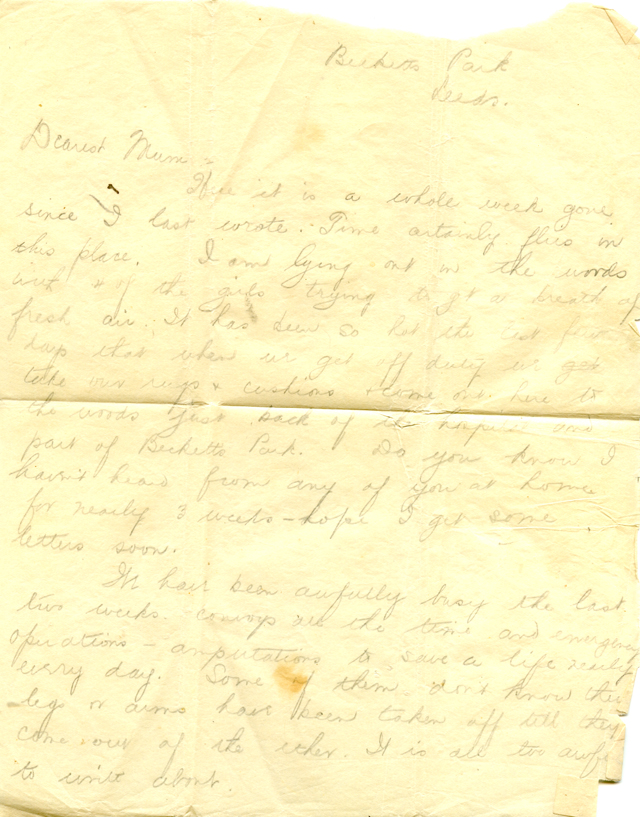 Becketts Park
Leeds.
Dearest Mum :-
Here it is a whole week gone
since I last wrote. Time certainly flies in
this place. I am lying out in the woods
with 4 of the girls trying to get a breath of
fresh air. It has been so hot the last few
days that when we get off duty we get
take our rugs & cushions & come out here to
the woods just back of the hospital and
part of Becketts Park. Do you know I
haven't heard from any of you at home
for nearly 3 weeks - hope I get some
letters soon.
We have been awfully busy the last
two weeks. convoys all the time and emergency
operations - amputations to save a life nearly
every day. Some of them don't know their
legs or arms have been taken off till they
come out of the ether. It is all too awful
to write about.